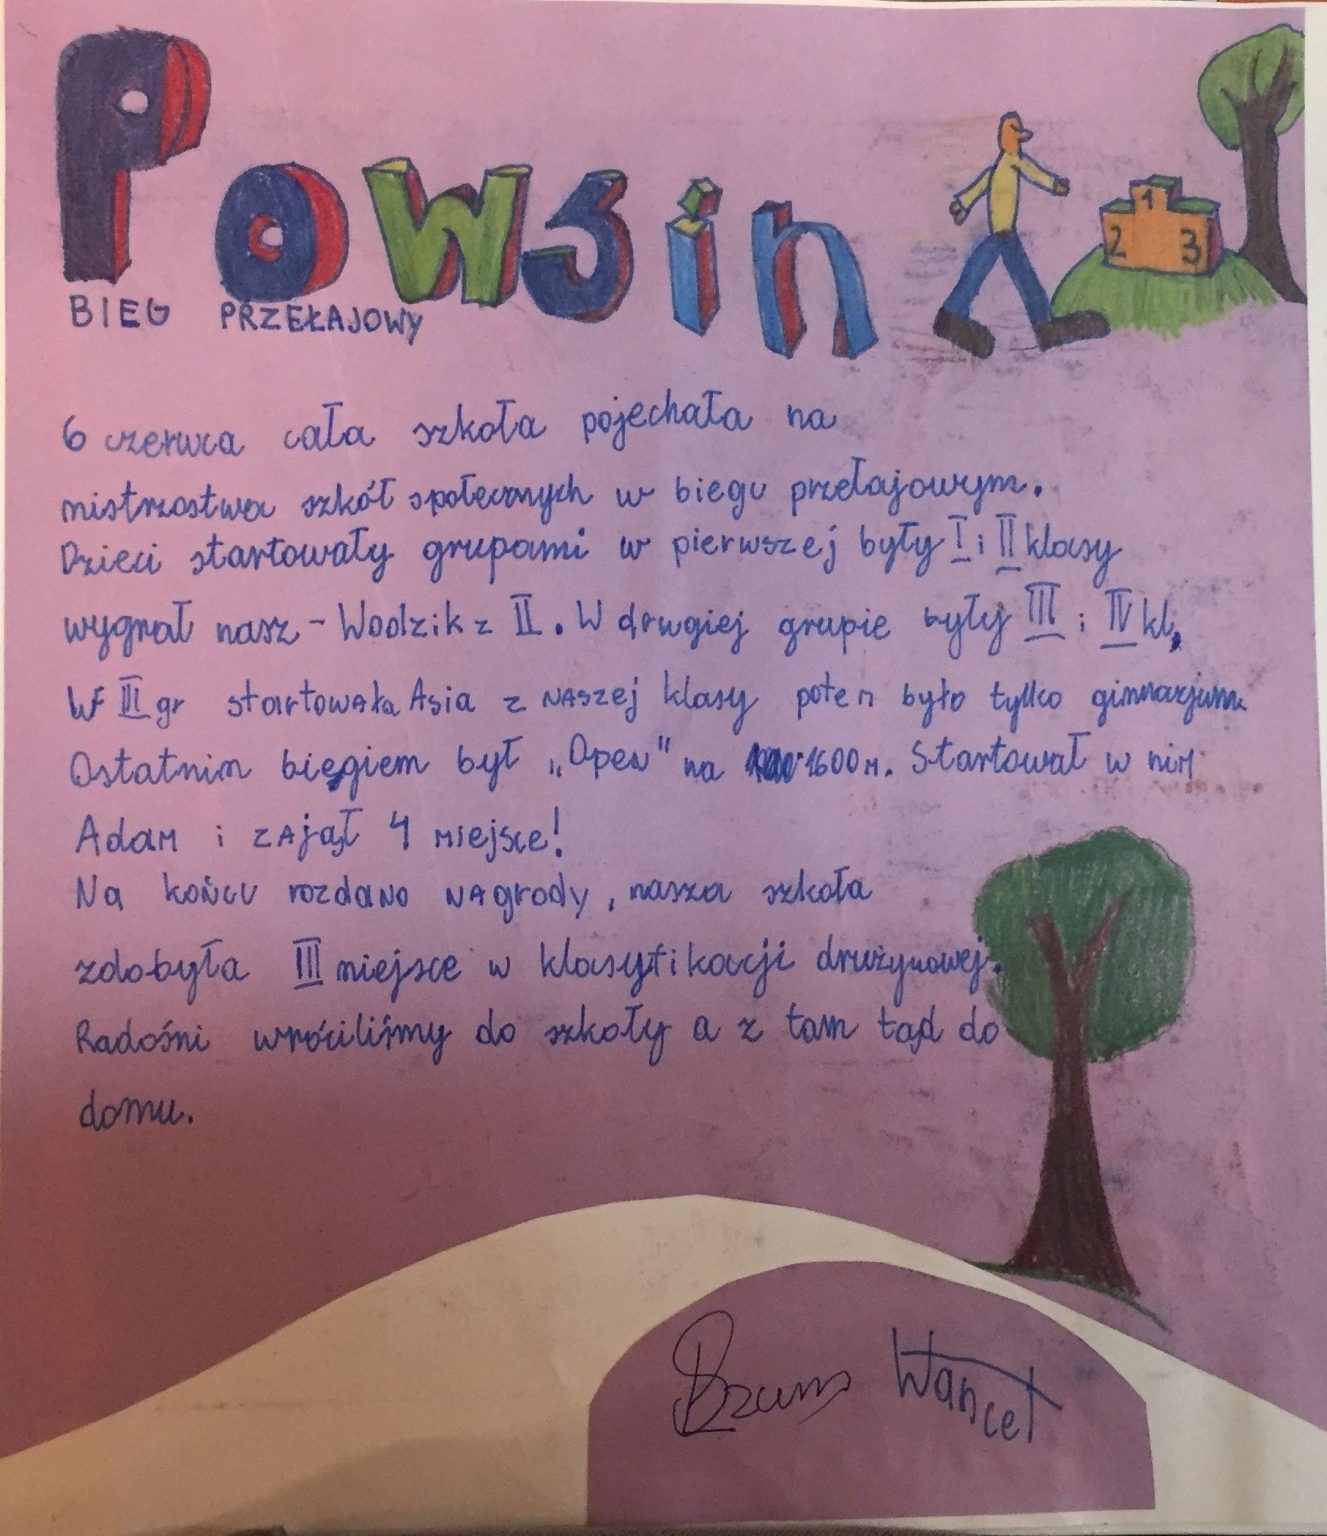 Powsin
BIEG PRZEŁAJOWY
1
2 3
6 czerwca cała szkoła pojechała na
mistrzostwa szkół społecznych w biegu przełajowym.
Dzieci startowały grupami w pierwszej były I i II klasy
wygrał nasz - Wodzik z II. W drugiej grupie były III i IV kl,
W III gr startowała Asia z naszej klasy poten było tylko gimnazjum
Ostatnim biegiem był „Open" na 1600m. Startował w nim
Adam i zajął 4 miejsce!
Na końcu rozdano nagrody, nasza szkoła
zdobyła III miejsce w klasyfikacji drużynowej.
Radośni wróciliśmy do szkoły a z tam tąd do
domu.